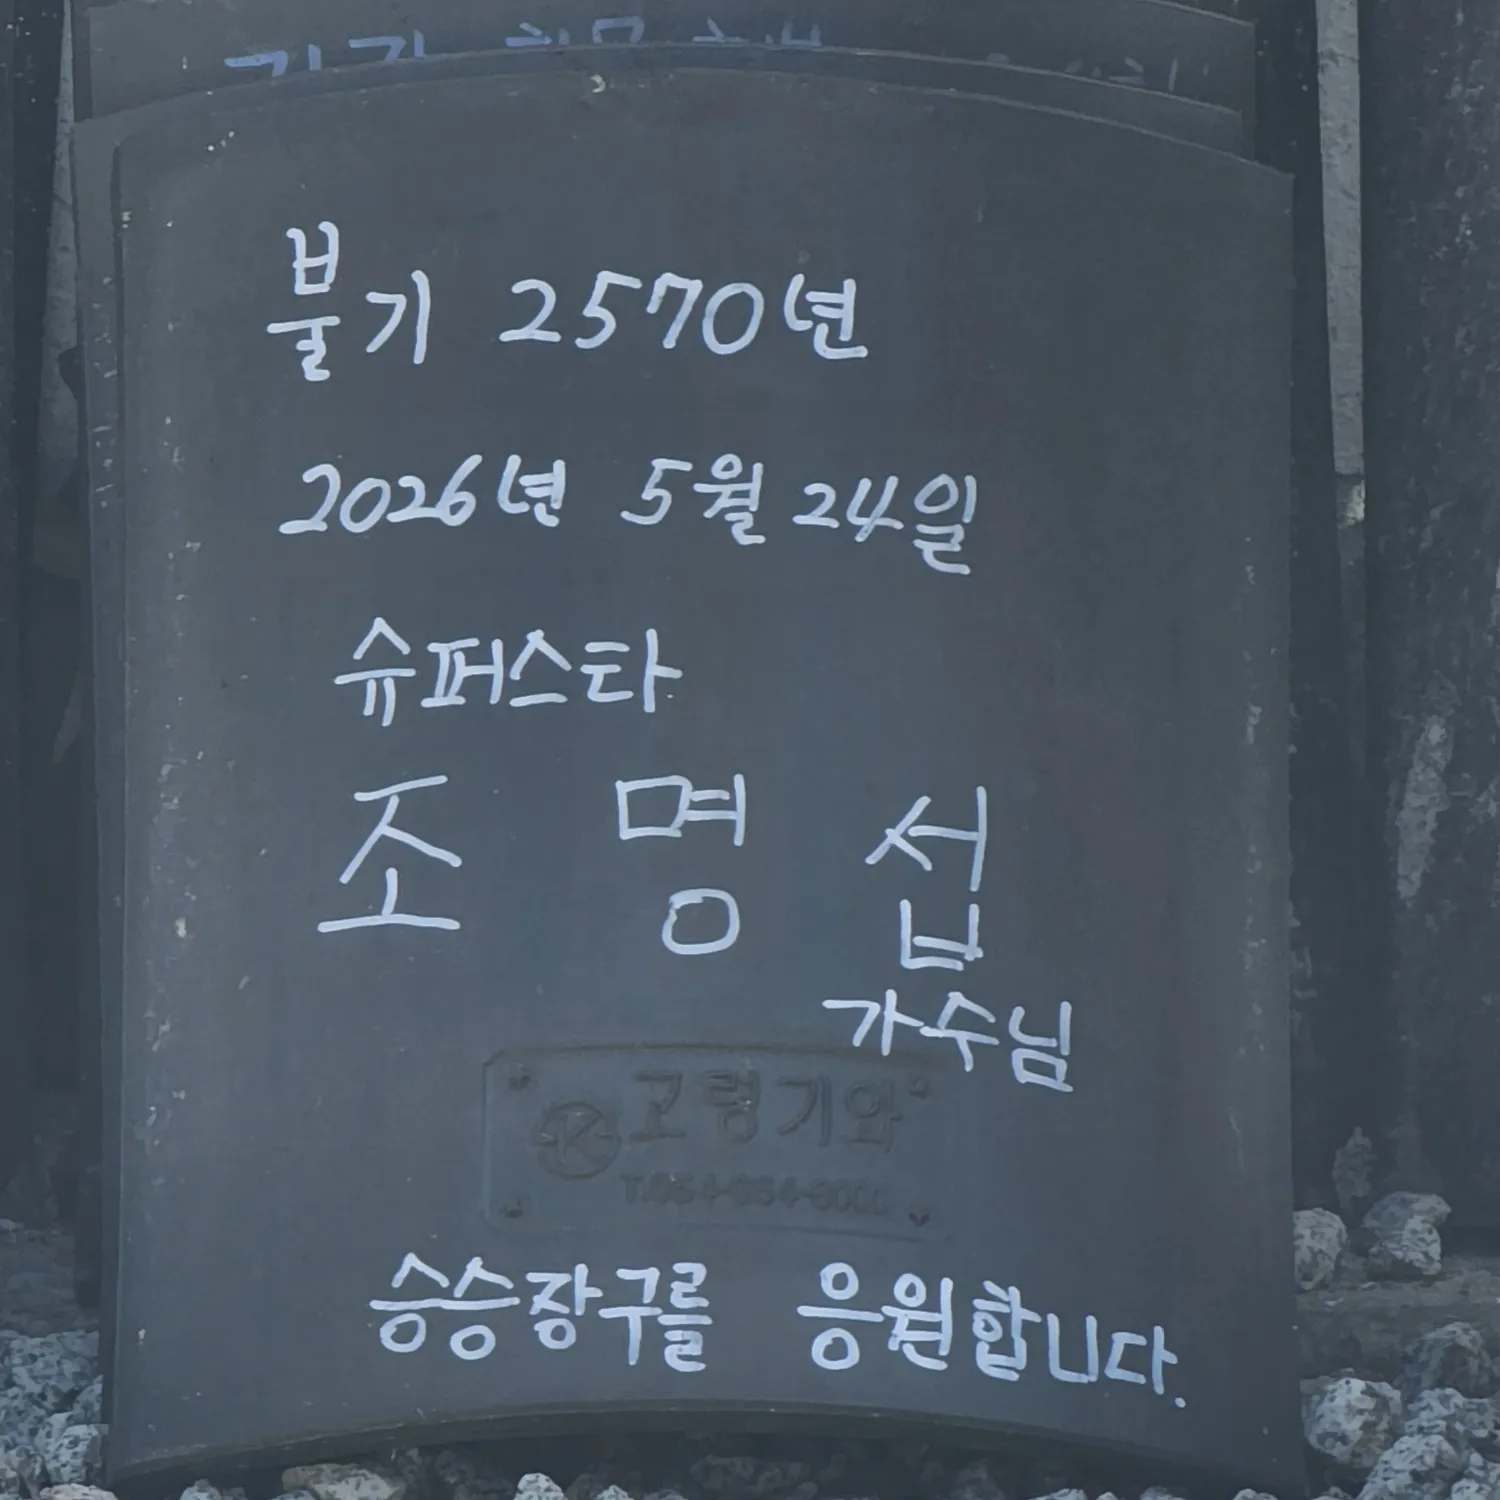 불기 2570년
2026년 5월 24일
슈퍼스타
조명섭
가수님
고령기와
승승장구를 응원합니다.